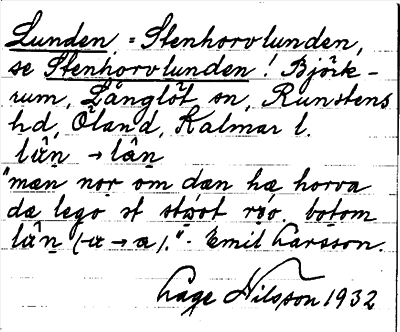 Lunden, = Stenhorvlunden,
se Stenhorvlunden! Björk-
rum, Långlöt sn, Runstens
hd, Öland, Kalmar l.
lɑ̈̂n → lân
"mæn nor om dæn hæ horva
dæ lego st stɷot rɷo. botom
lɑ̈̂n (-ɑ → a)." - Emil Larsson.
Åage Nilsson 1932